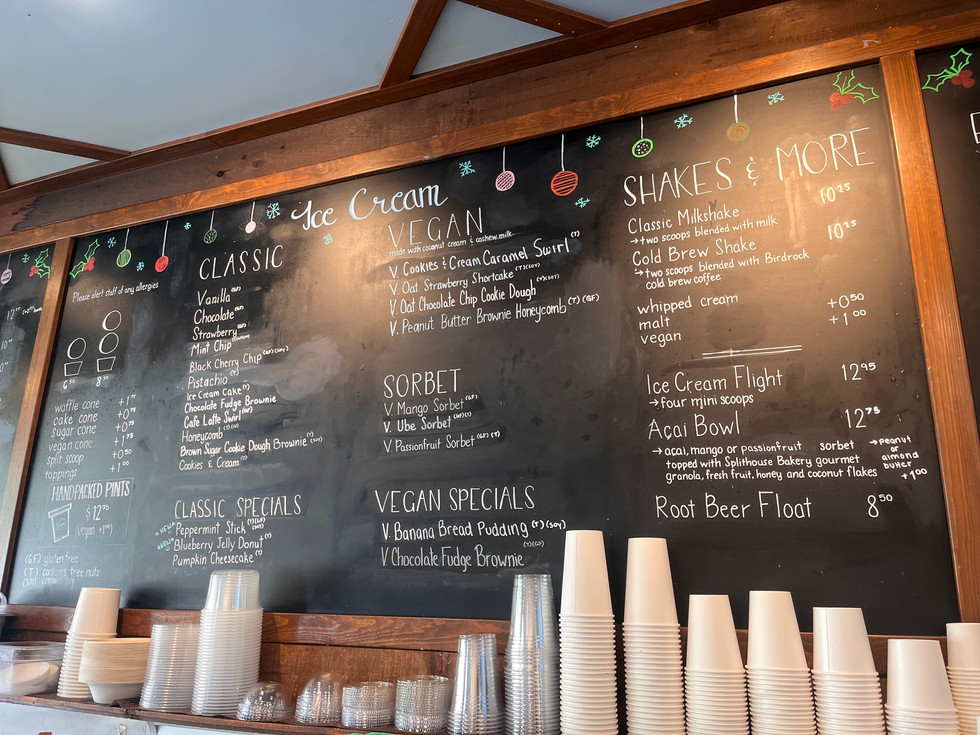 Ice Cream
Please alert staff of any allergies
waffle cone +1⁰⁰
cake cone
sugar cone
vegan cone
split scoop +0⁵⁰
toppings +1⁰⁰
HANDPACKED PINTS
$12⁷⁵
(vegan +1⁰⁰)
(GF) gluten free
(T) contains tree nuts
CLASSIC
Vanilla (GF)
Chocolate (GF)
Strawberry (GF)
Mint Chip
Black Cherry Chip (GF) (SOY)
Pistachio (T)
Ice Cream Cake (T)
Chocolate Fudge Brownie
Café Latte Swirl (GF)
Honeycomb
Brown Sugar Cookie Dough Brownie (T)
Cookies & Cream (T)
CLASSIC SPECIALS
Peppermint Stick (T)(GF)
Blueberry Jelly Donut (T)
Pumpkin Cheesecake (T)
VEGAN
made with coconut cream & cashew milk
V. Cookies & Cream Caramel Swirl (T)
V. Oat Strawberry Shortcake (T)(SOY)
V. Oat Chocolate Chip Cookie Dough (T)(SOY)
V. Peanut Butter Brownie Honeycomb (T)(GF)
SORBET
V Mango Sorbet (GF)
V. Ube Sorbet
V. Passionfruit Sorbet (GF) (T)
VEGAN SPECIALS
V. Banana Bread Pudding (T)(SOY)
V Chocolate Fudge Brownie
SHAKES & MORE
Classic Milkshake 10²⁵
→two scoops blended with milk
Cold Brew Shake 10²⁵
→two scoops blended with Birdrock
cold brew coffee
whipped cream +0⁵⁰
malt +1⁰⁰
vegan
Ice Cream Flight 12⁹⁵
→four mini scoops
Açai Bowl 12⁷⁵
→acai, mango or passionfruit sorbet
topped with Splithouse Bakery gourmet
granola, fresh fruit, honey and coconut flakes
→peanut
or
almond
butter
+1⁰⁰
Root Beer Float 8⁵⁰